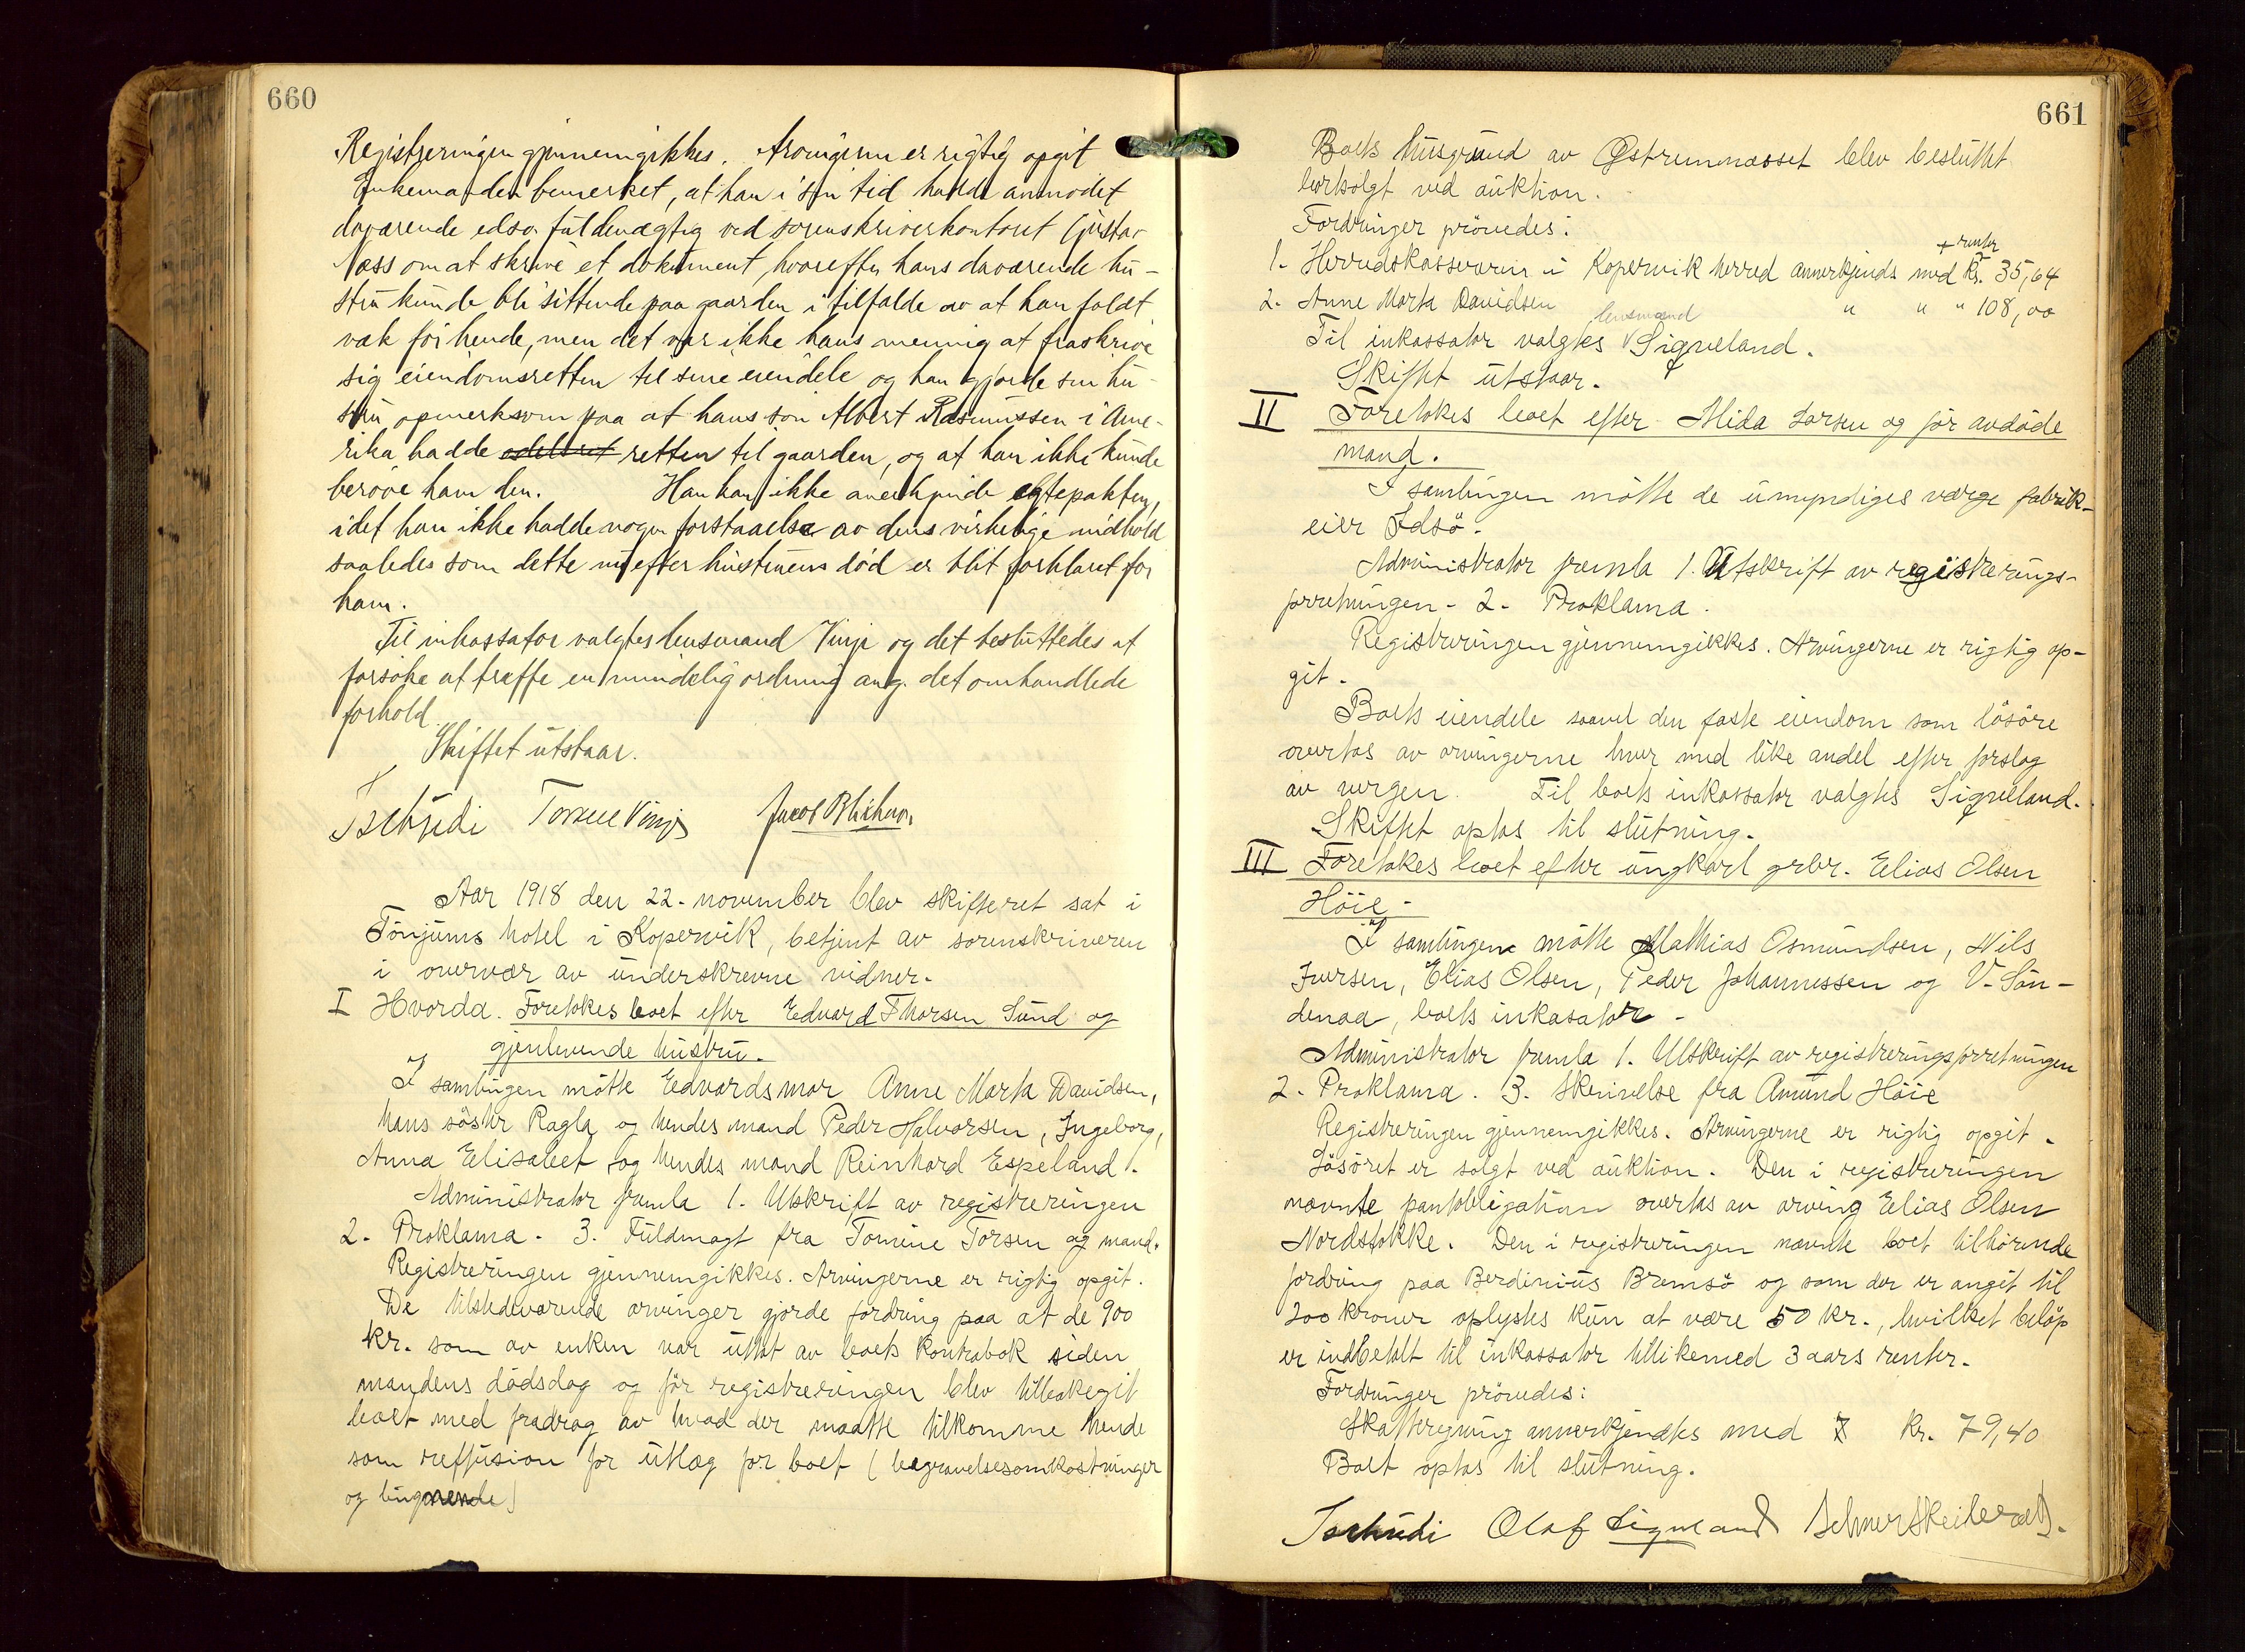 660
Registreringen gjennemgikkes. Arvingerne er rigtig opgit
Enkemanden bemerket, at han i sin tid hadde anmodet
daværende edsv. fuldmægtig ved sorenskriverkontoret Gustav
Næss om at skrive et dokument, hvorefter hans daværende hu-
stru kunde bli sittende paa gaarden i tilfælde av at han faldt
væk før hende, men det var ikke hans mening at fraskrive
sig eiendomsretten til sine eiendele og han gjorde sin hu-
stru opmerksom paa at hans søn Albert Rasmussen i Ame-
rika hadde odelsret retten til gaarden, og at han ikke kunde
berøve ham den. Han kan ikke anerkjende egtepakten,
idet han ikke hadde nogen forstaaelse av dens virkelige indhold
saaledes som dette nu efter hustruens død er blit forklaret for
ham.
Til inkassator valgtes lensmand Vinje og det besluttedes at
forsøke at træffe en mindelig ordning ang. det omhandlede
forhold.
Skiftet utstaar.
Tschudi Torkel Vinje Jacob Blikhavn.
Aar 1918 den 22. november blev skifteret sat i
Tönjums hotel i Kopervik, betjent av sorenskriveren
i overvær av underskrevne vidner.
I Hvorda. Foretokes boet efter Edvard Thorsen Sund og
gjenlevende hustru.
I samlingen mötte Edvards mor Anne Marta Davidsen,
hans söster Ragla og hendes mand Peder Halvorsen, Ingeborg,
Anna Elisabet og hendes mand Reinhard Espeland.
Administrator framla 1. Utskrift av registreringen
2. Proklama. 3. Fuldmagt fra Tomine Torsen og mand.
Registreringen gjennemgikkes. Arvingerne er rigtig opgit.
De tilstedeværende arvinger gjorde fordring paa at de 900
kr. som av enken var uttat av boets kontrabok siden
mandens dödsdag og för registreringen blev tilbakegit
boet med fradrag av hvad der maatte tilkomme hende
som reffusion for utlæg for boet (begravelsesomkostninger
og lignende)
661
Boets husgrund av Østremnæsset blev besluttet
bortsolgt ved auktion.
Fordringer prövedes:
+ renter
1. Herredskassereren i Kopervik herred annerkjendes med kr. 35,64
2. Anne Marta Davidsen " " " 108,00
lensmand
Til inkassator valgtes V Sigveland.
Skiftet utstaar.
II Foretokes boet efter Alida Larsen og för avdöde
mand.
I samlingen mötte de umyndiges værge fabrik-
eier Idsö.
Administrator framla 1. Utskrift av registrerings-
forretningen - 2. Proklama.
Registreringen gjennemgikkes. Arvingerne er rigtig op-
git.
Boets eiendele saavel den faste eiendom som lösöre
overtas av arvingerne hver med like andel efter forslag
av vergen. Til boets inkassator valgtes Sigveland.
Skiftet optas til slutning.
III Foretokes boet efter ungkarl grbr. Elias Olsen
Höie.
I samlingen mötte Mathias Osmundsen, Nils
Iversen, Elias Olsen, Peder Johannessen og V. Sön-
denaa, boets inkasator.
Administrator framla 1. Utskrift av registreringsforretningen
2. Proklama. 3. Skrivelse fra Amund Höie
Registreringen gjennemgikkes. Arvingerne er rigtig opgit.
Lösöret er solgt ved auktion. Den i registreringen
nævnte pantobligation overtas av arving Elias Olsen
Nordstokke. Den i registreringen nævnte boet tilhörende
fordring paa Berdinius Bremsö og som der er angit til
200 kroner oplystes kun at være 50 kr., hvilket belöp
er indbetalt til inkassator tillikemed 3 aars renter.
Fordringer prövedes:
Skatteregning annerkjendtes med kr. 79,40
Boet optas til slutning.
Tschudi Olaf Sigveland